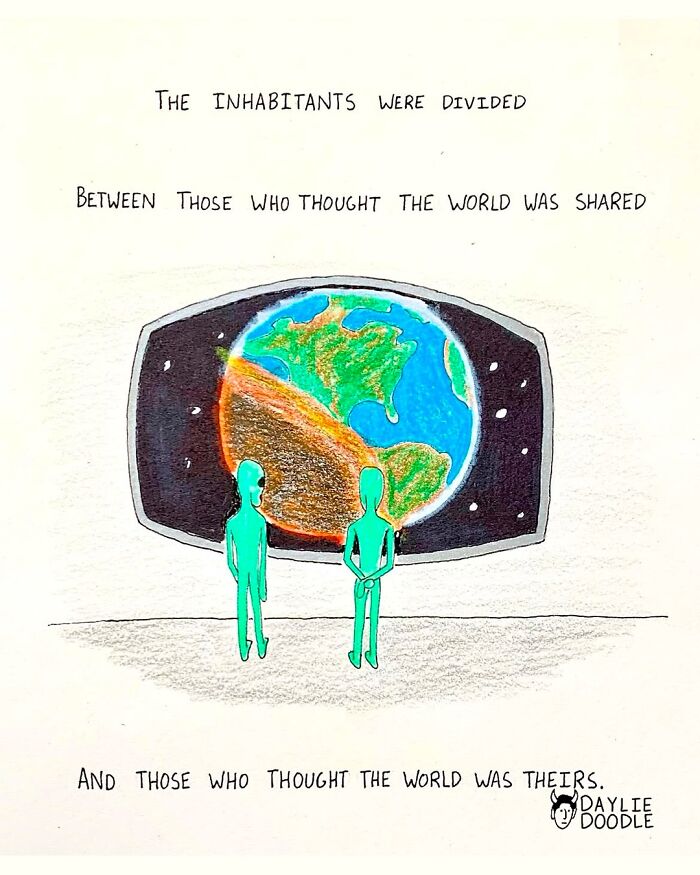 THE INHABITANTS WERE DIVIDED
BETWEEN THOSE WHO THOUGHT THE WORLD WAS SHARED
AND THOSE WHO THOUGHT THE WORLD WAS THEIRS.
DAYLIE
DOODLE